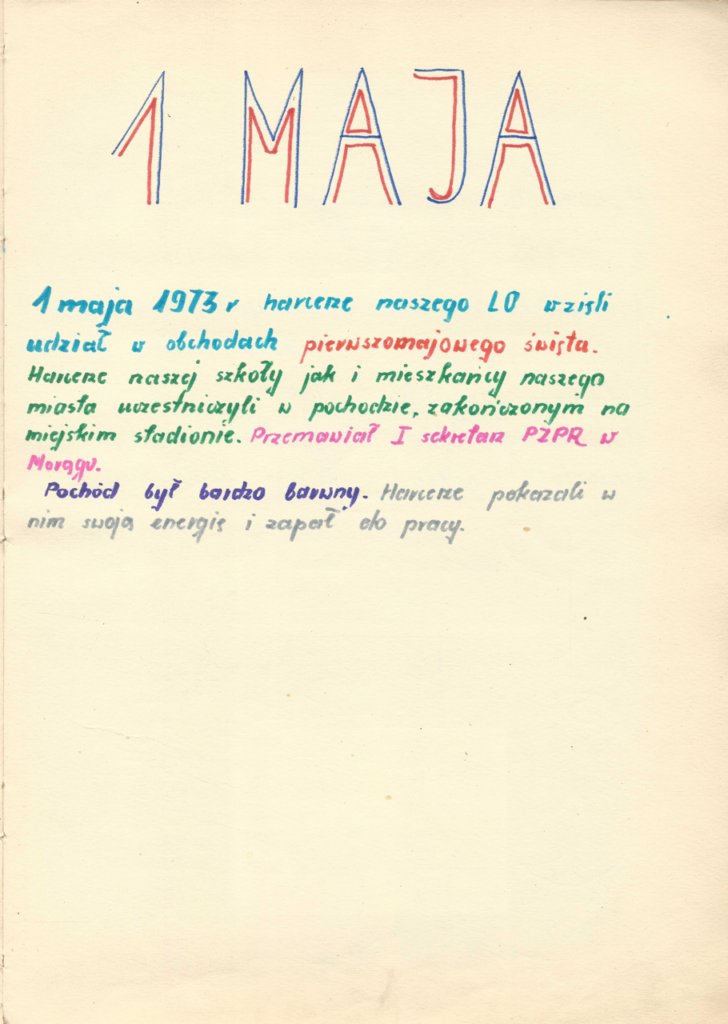 1 MAJA
1 maja 1973 r harcerze naszego LO wzięli
udział w obchodach pierwszomajowego święta.
Harcerze naszej szkoły jak i mieszkańcy naszego
miasta uczestniczyli w pochodzie, zakończonym na
miejskim stadionie. Przemawiał I sekretarz PZPR w
Morągu.
Pochód był bardzo barwny. Harcerze pokazali w
nim swoją energię i zapał do pracy.